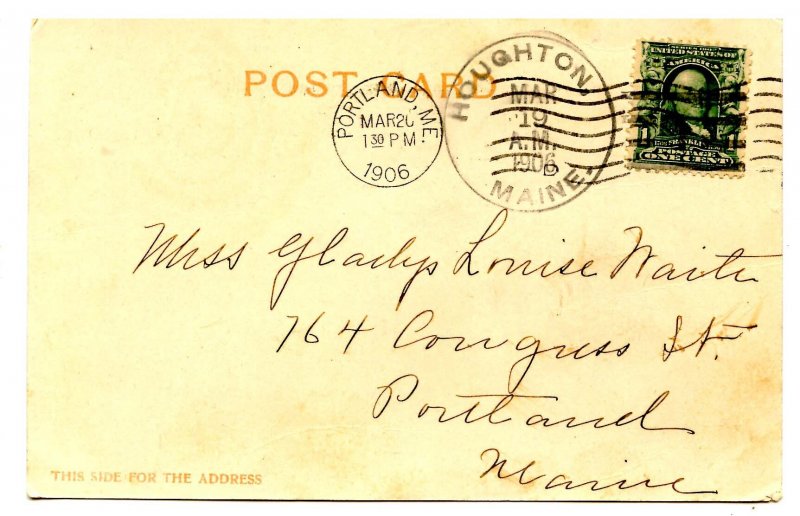 POST CARD
PORTLAND, ME.
MAR 20
1 30 PM
1906
HOUGHTON,
MAR
19
A.M.
1906
MAINE.
SERIES 1902
UNITED STATES OF
AMERICA
1 FRANKLIN 1
POSTAGE
ONE CENT
Miss Gladys Louise Waite
764 Congress St.
Portland
Maine
THIS SIDE FOR THE ADDRESS